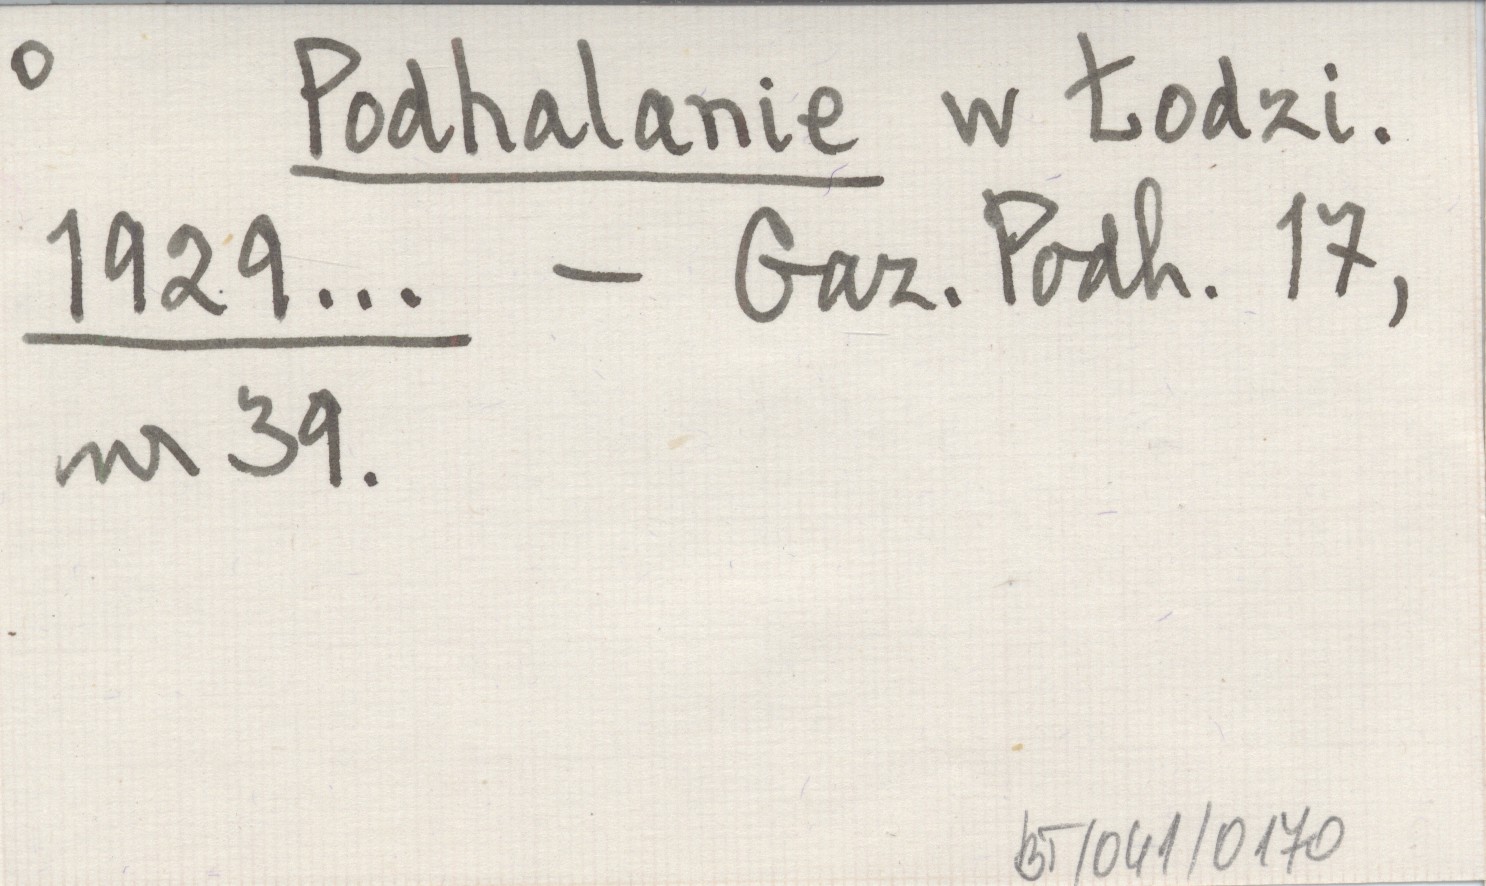 o Podhalanie w Łodzi.
1929... — Gaz. Podh. 17,
nr 39.
BT/041/0170